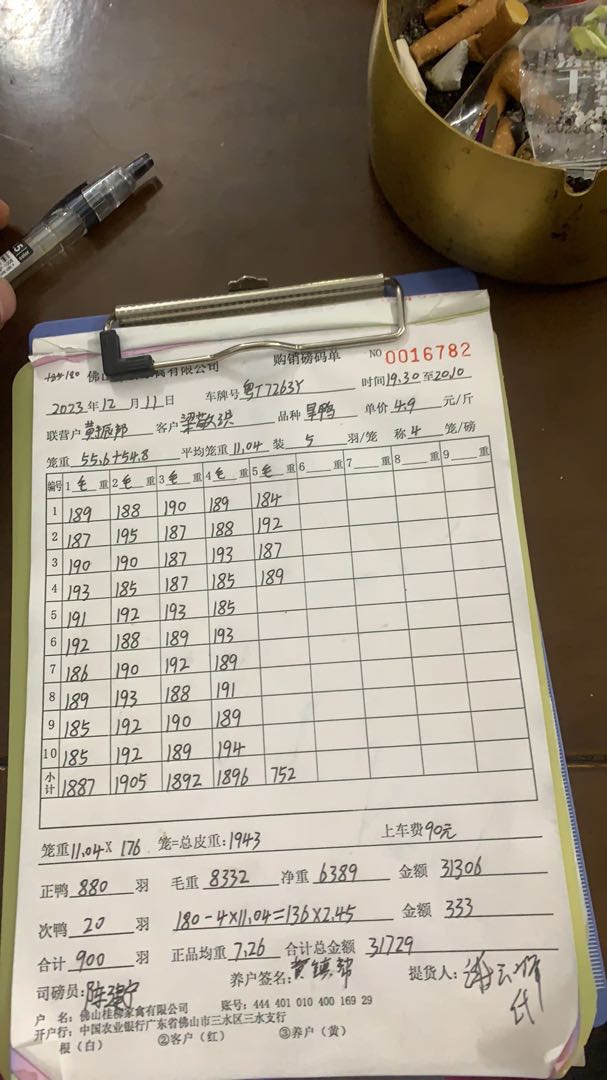 购销磅码单 NO 0016782
佛山 禽有限公司
2023年12月11日 车牌号 粤T7263Y 时间 19.30至20.10
联营户 黄振邦 客户 品种 旱鸭 单价 4.9 元/斤
笼重 55.6+54.8 平均笼重 11.04 装 5 羽/笼 称 4 笼/磅
编号 1 毛 重 2 毛 重 3 毛 重 4 毛 重 5 毛 重 6 重 7 重 8 重 9 重
1 189 188 190 189 184
2 187 195 187 188 192
3 190 190 187 193 187
4 193 185 187 185 189
5 191 192 193 185
6 192 188 189 193
7 186 190 192 189
8 189 193 188 191
9 185 192 190 189
10 185 192 189 194
小计 1887 1905 1892 1896 752
笼重 11.04 × 176 笼=总皮重:1943 上车费 90元
正鸭 880 羽 毛重 8332 净重 6389 金额 31306
次鸭 20 羽 180-4×11.04=136×2.45 金额 333
合计 900 羽 正品均重 7.26 合计总金额 31729
司磅员: 养户签名: 提货人:
户 名: 佛山桂柳家禽有限公司 账号: 444 401 010 400 169 29
开户行: 中国农业银行广东省佛山市三水区三水支行
根(白) ②客户(红) ③养户(黄)